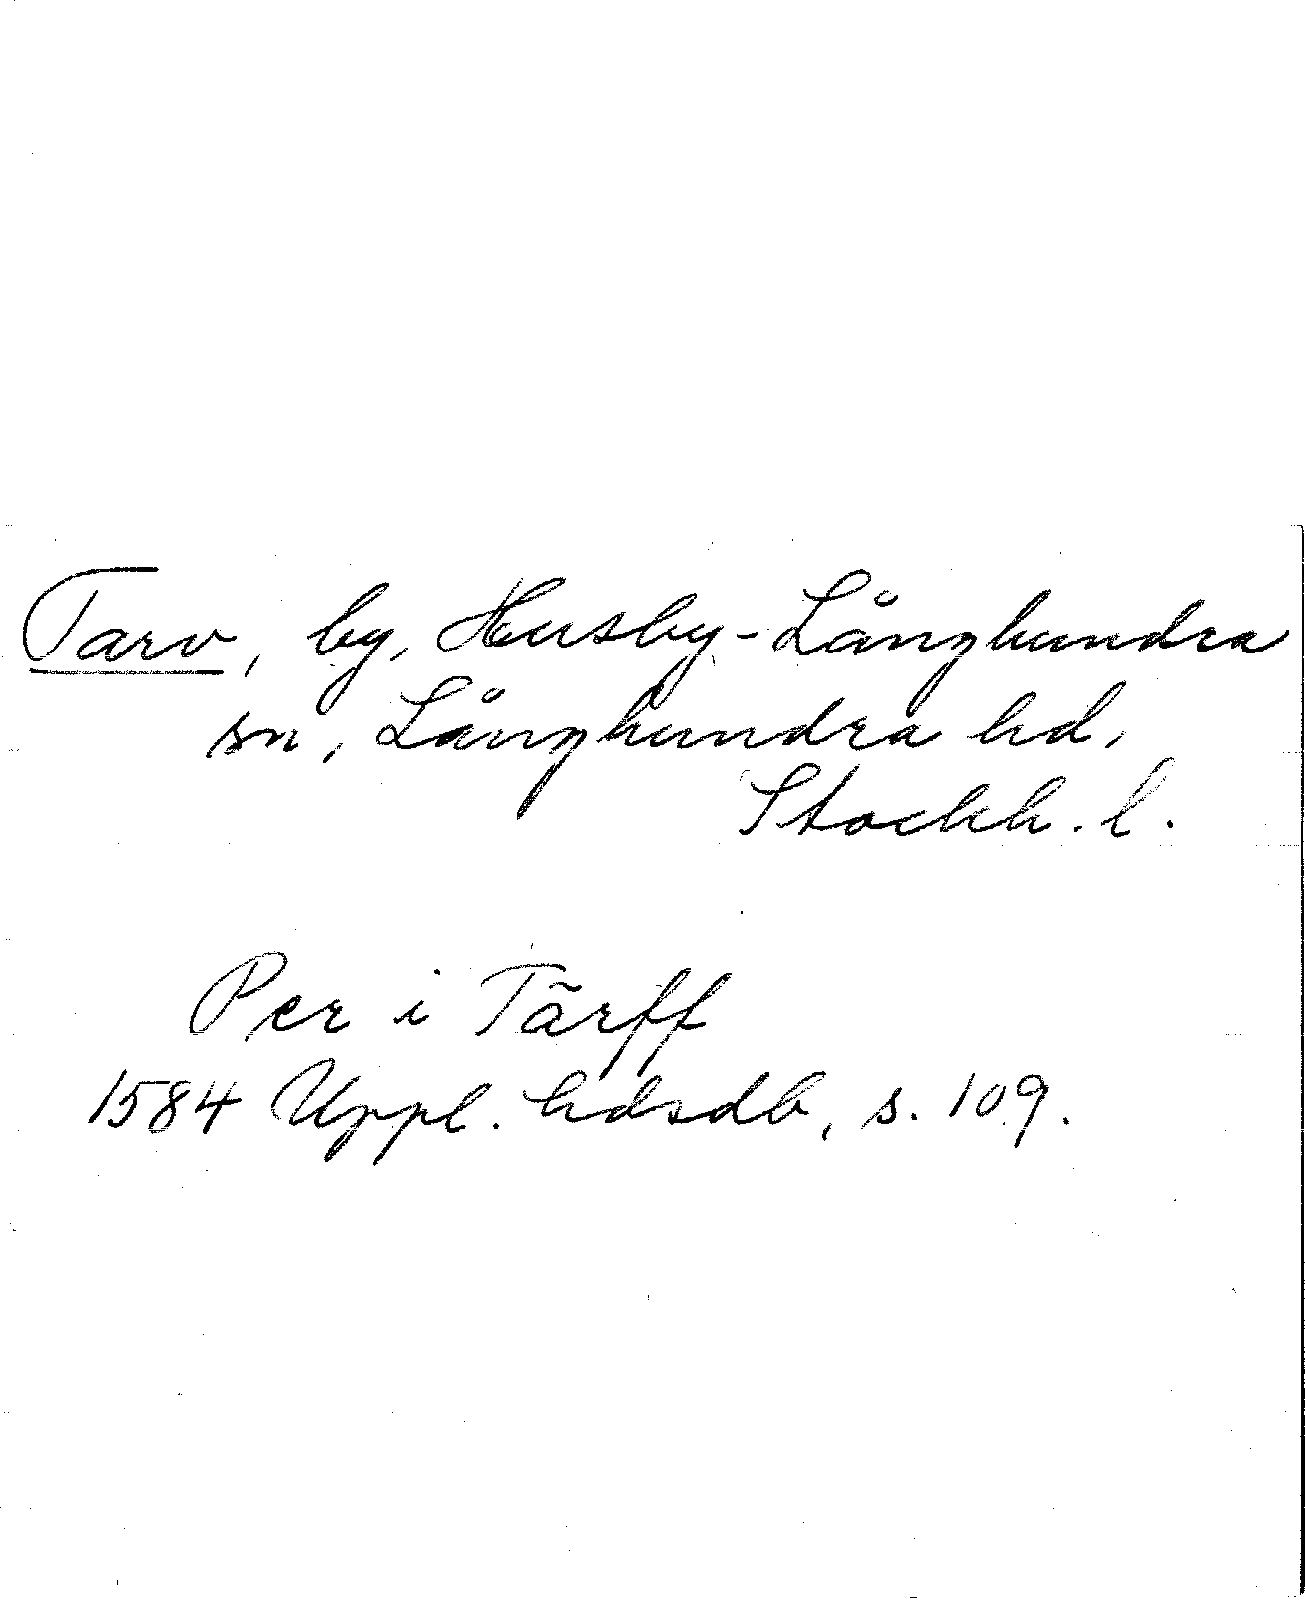 Tarv, by, Husby-Långhundra
sn, Långhundra hd,
Stockh. l.
Per i Tärff
1584 Uppl. hdsdb, s. 109.